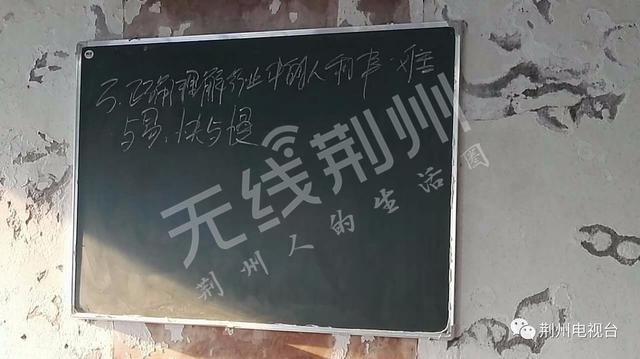 3、正确理解行业中的人和事、难
与易、快与慢
无线荆州
荆州人的生活圈
荆州电视台